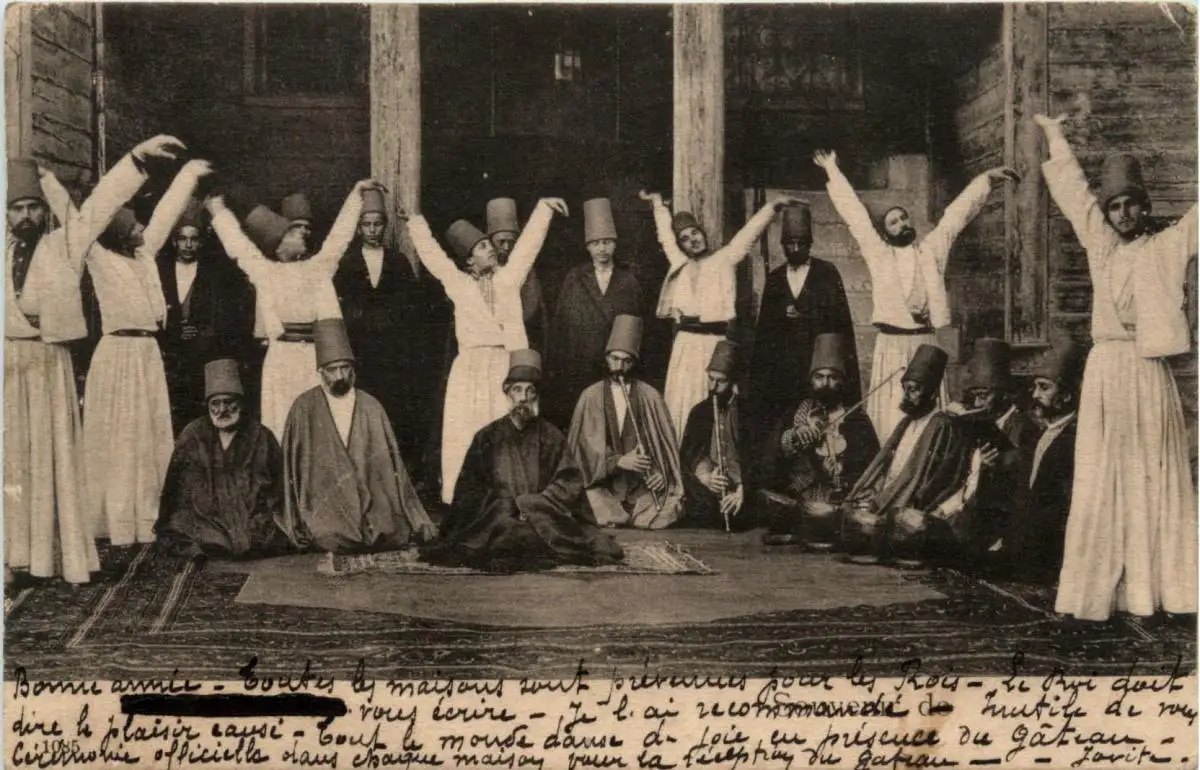 Bonne année - Toutes les maisons sont prévenues pour les Rois - Le Roi doit
vous écrire - Je l'ai recommandé - Inutile de vous
dire le plaisir causé - Tout le monde danse de joie en présence du gâteau -
1085
Souvenir de
Cérémonie officielle dans chaque maison pour la réception du gâteau -